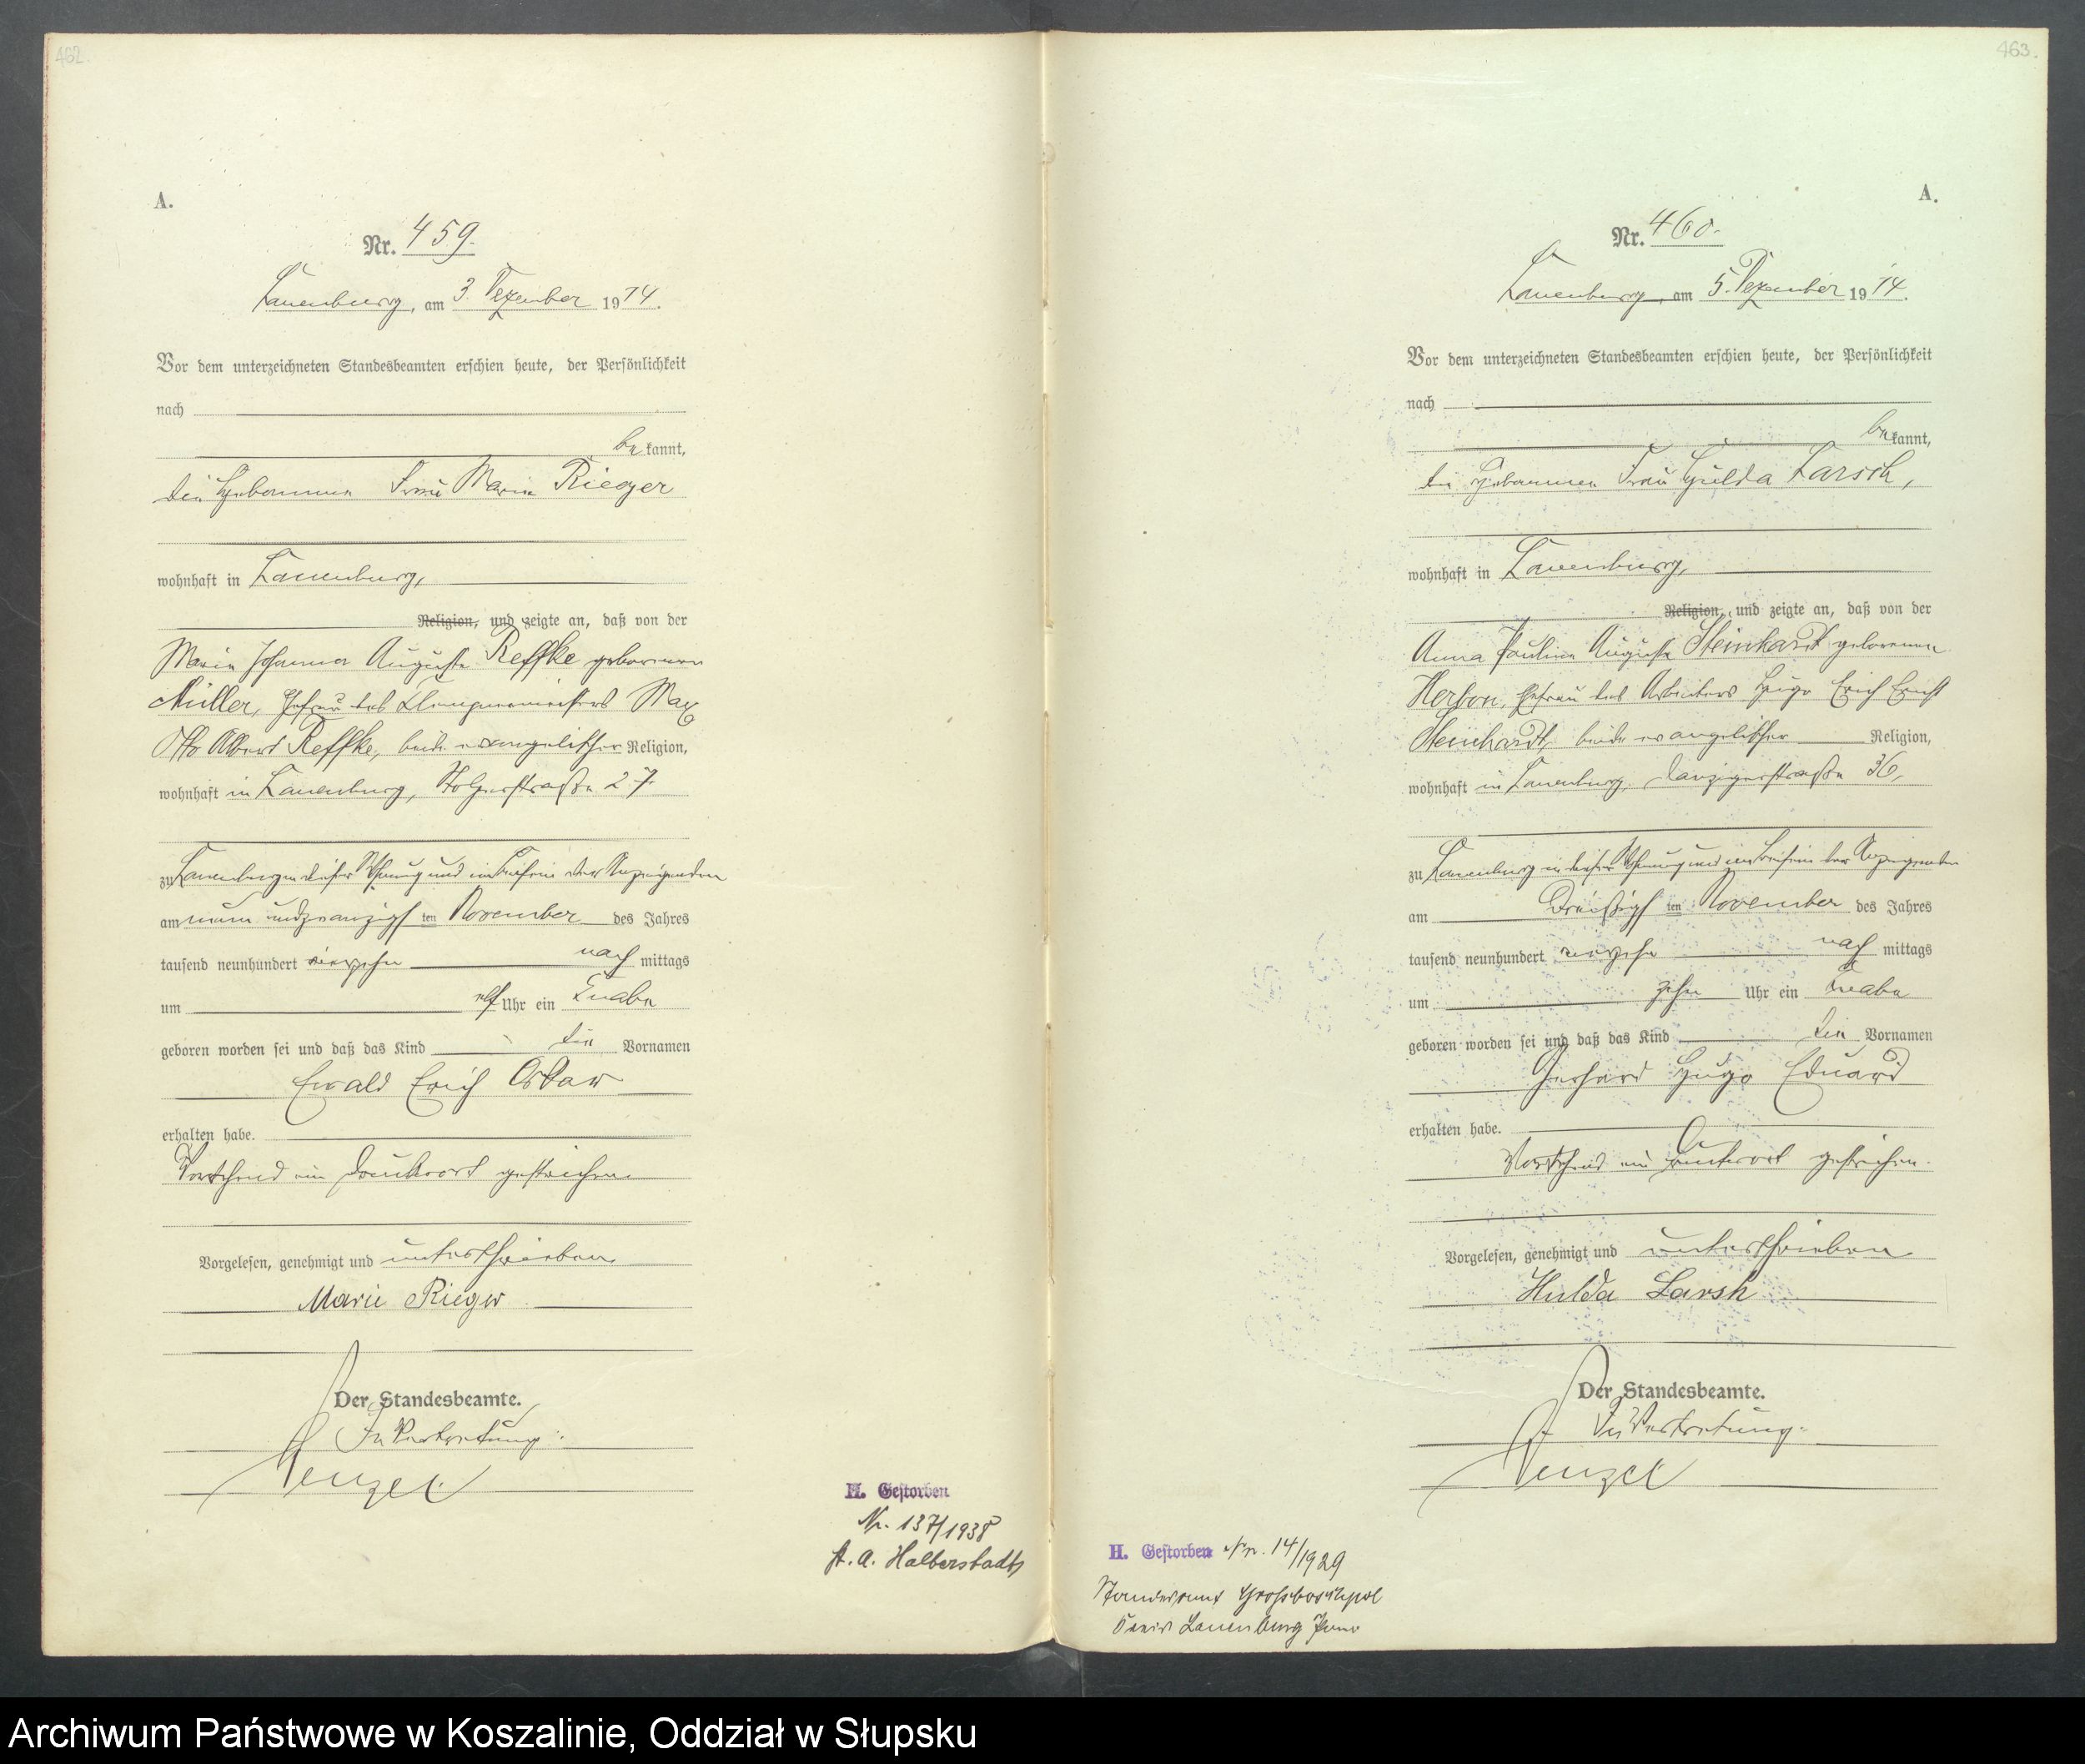 462.
A.
Nr. 459.
Lauenburg, am 3. Dezember 1914.
Vor dem unterzeichneten Standesbeamten erschien heute, der Persönlichkeit
nach
bekannt,
die Hebamme Frau Marie Rieger
wohnhaft in Lauenburg,
Religion, und zeigte an, daß von der
Marie Johanna Auguste Reffke geborenen
Müller, Ehefrau des Klempnermeisters Max
Otto Albert Reffke, beide evangelischer Religion,
wohnhaft in Lauenburg, Stolperstraße 27.
zu Lauenburg in dieser Wohnung und im Beisein der Anzeigenden
am neunundzwanzigsten November des Jahres
tausend neunhundert vierzehn nachmittags
um elf Uhr ein Knabe
geboren worden sei und daß das Kind die Vornamen
Ewald Erich Oskar
erhalten habe.
Vorstehend ein Druckwort gestrichen
Vorgelesen, genehmigt und unterschrieben
Marie Rieger
Der Standesbeamte.
In Vertretung:
Wenzel
H. Gestorben
Nr. 137/1938
St. A. Halberstadt
463.
A.
Nr. 460.
Lauenburg, am 5. Dezember 1914.
Vor dem unterzeichneten Standesbeamten erschien heute, der Persönlichkeit
nach
bekannt,
die Hebamme Frau Hulda Larsch,
wohnhaft in Lauenburg,
Religion, und zeigte an, daß von der
Anna Pauline Auguste Steinhardt geborenen
Herbon, Ehefrau des Arbeiters Hugo Erich Ernst
Steinhardt, beide evangelischer Religion,
wohnhaft in Lauenburg, Danzigerstraße 36,
zu Lauenburg in dieser Wohnung und im Beisein der Anzeigenden
am Dreißigsten November des Jahres
tausend neunhundert vierzehn nachmittags
um zehn Uhr ein Knabe
geboren worden sei und daß das Kind die Vornamen
Gerhard Hugo Eduard
erhalten habe.
Vorstehend ein Druckwort gestrichen.
Vorgelesen, genehmigt und unterschrieben
Hulda Larsh
Der Standesbeamte.
In Vertretung:
Wenzel
H. Gestorben Nr. 14/1929
Standesamt Grossboschpol
Kreis Lauenburg Pom
Archiwum Państwowe w Koszalinie, Oddział w Słupsku